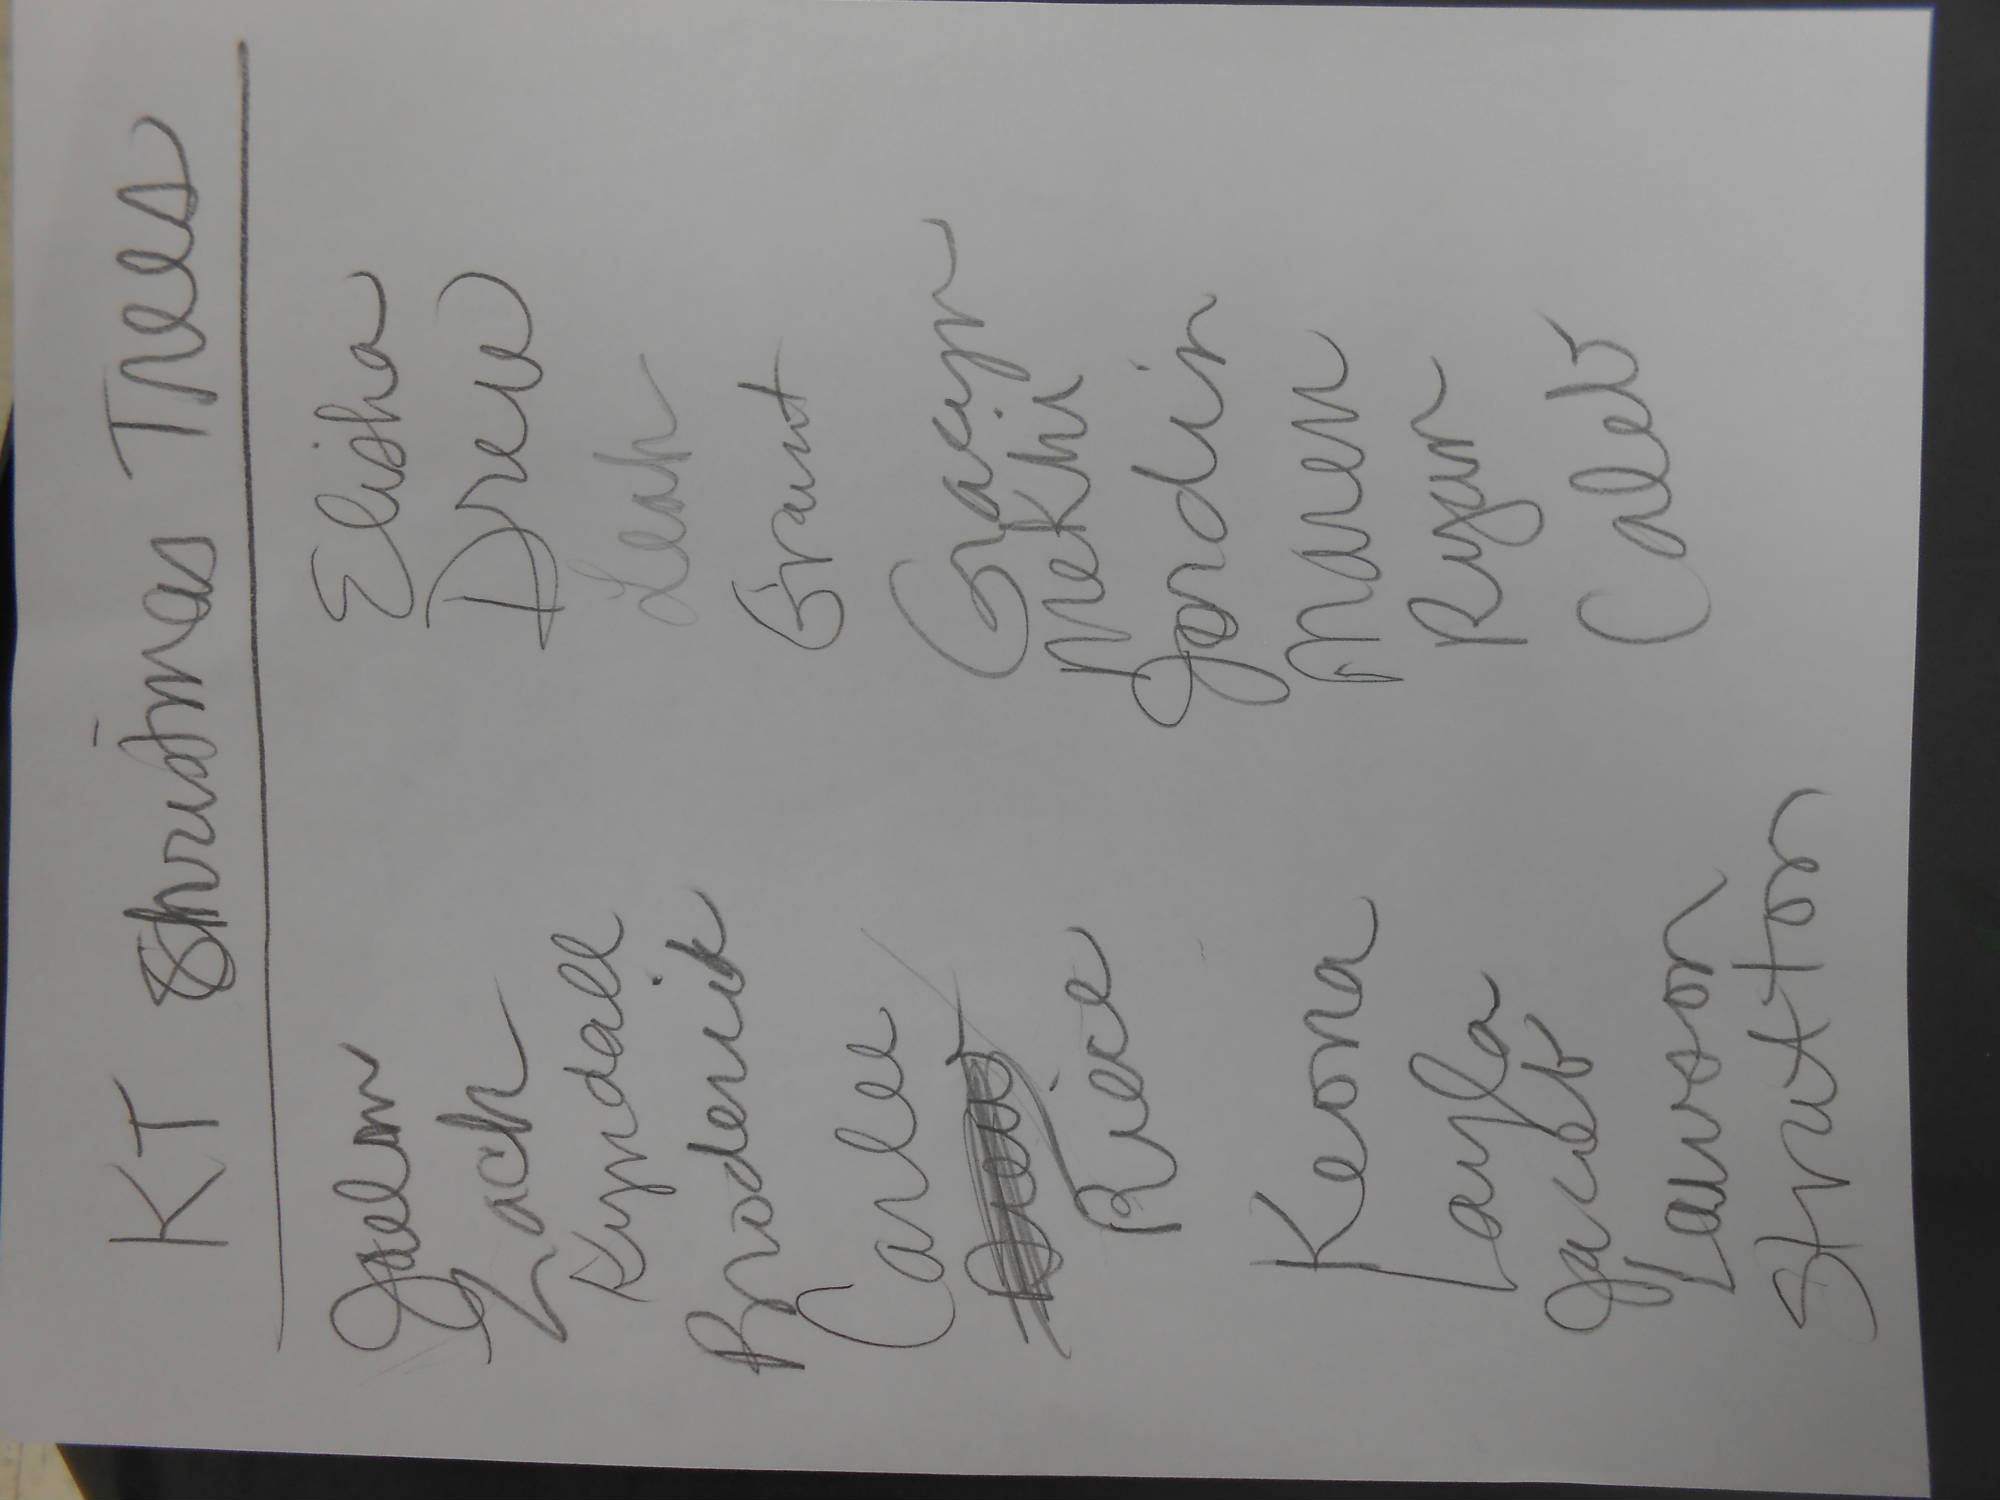 KT Christmas Trees
Jaelyn
Zach
Kyndall
Broderick
Carlee
Rice
Keona
Layla
Jacob
Lawson
Strutton
Elisha
Drew
Leah
Grant
Gracyn
Mekhi
Jordin
Maren
Ryan
Caleb